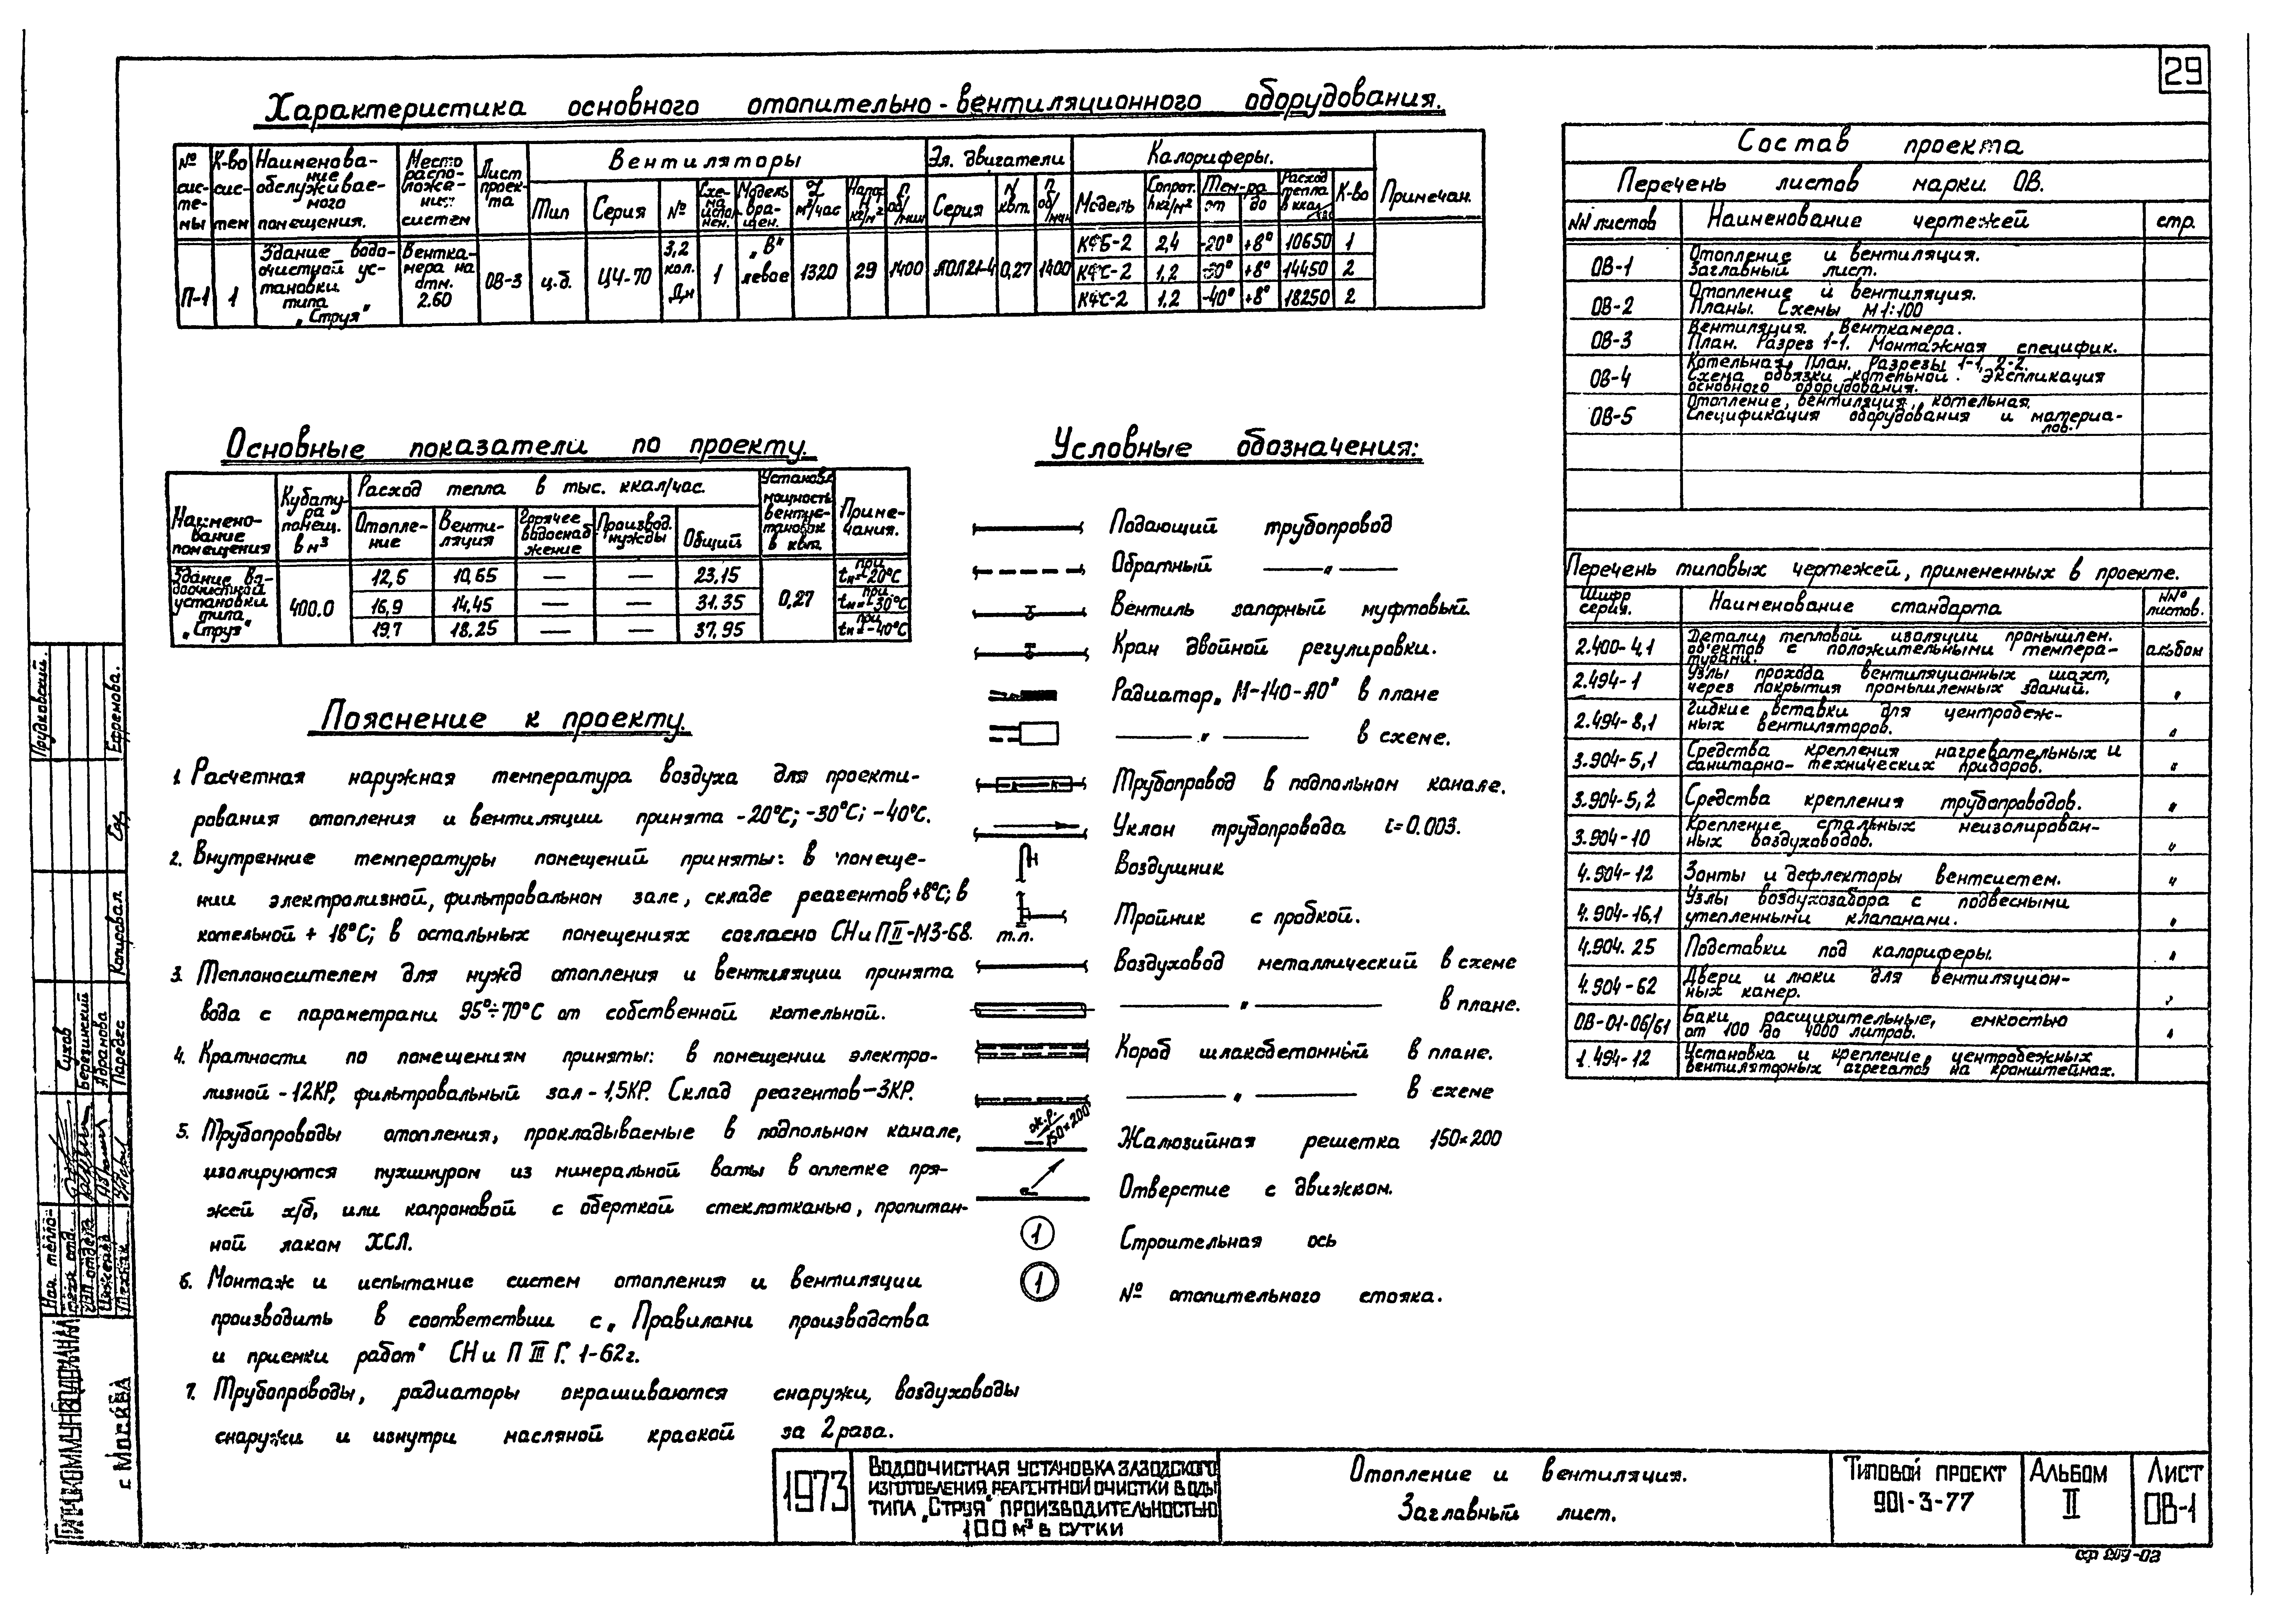 29
Характеристика основного отопительно-вентиляционного оборудования.
№ сис-те-мы
К-во сис-тем
Наименова-ние обслуживае-мого помещения.
Место распо-ложе-ния систем
Лист проек-та
Вентиляторы
Эл. двигатели
Калориферы.
Примечан.
Тип
Серия
№
Схе-ма испол-нен.
Модель вра-щен.
м³/час
кг/м²
п об/мин
Серия
N квт.
п об/мин
Модель
Сопрот. h кг/м²
Тем-ра
от
до
Расход тепла в ккал/час
К-во
П-1
1
Здание водо-
очистной ус-
тановки
типа
„Струя"
Вентка-
мера на
отм.
2.60
ОВ-3
ц.б.
Ц4-70
3,2
кол.
Дн
1
„В"
левое
1320
29
1400
АОЛ21-4
0,27
1400
КФБ-2 2,4 -20° +8° 10650 1
КФС-2 1,2 -30° +8° 14450 2
КФС-2 1.2 -40° +8° 18250 2
Основные показатели по проекту.
Наимено-
вание
помещения
Кубату-
ра
помещ.
в м³
Расход тепла в тыс. ккал/час.
Отопле-
ние
Венти-
ляция
Горячее
водоснаб
жение
Производ.
нужды
Общий
Установ.
мощность
вентус-
тановок
в квт.
Приме-
чания.
Здание во-
доочистной
установки
типа
„Струя"
400.0
12,5 10,65 — — 23,15
16,9 14,45 — — 31.35
19.7 18.25 — — 37,95
0,27
при
tн=-20°С
при
tн=-30°С
при
tн=-40°С
Пояснение к проекту.
1. Расчетная наружная температура воздуха для проекти-
рования отопления и вентиляции принята -20°С; -30°С; -40°С.
2. Внутренние температуры помещений приняты: в помеще-
нии электролизной, фильтровальном зале, складе реагентов +8°С; в
котельной + 18°С; в остальных помещениях согласно СНиПII-М3-68.
3. Теплоносителем для нужд отопления и вентиляции принята
вода с параметрами 95°÷70°С от собственной котельной.
4. Кратности по помещениям приняты: в помещении электро-
лизной - 12КР, фильтровальный зал - 1,5КР. Склад реагентов - 3КР.
5. Трубопроводы отопления, прокладываемые в подпольном канале,
изолируются пухшнуром из минеральной ваты в оплетке пря-
жей х/б, или капроновой с оберткой стеклотканью, пропитан-
ной лаком ХСЛ.
6. Монтаж и испытание систем отопления и вентиляции
производить в соответствии с „Правилами производства
и приемки работ" СНиП III Г. 1-62г.
7. Трубопроводы, радиаторы окрашиваются снаружи, воздуховоды
снаружи и изнутри масляной краской за 2 раза.
Условные обозначения:
Подающий трубопровод
Обратный —„—
Вентиль запорный муфтовый.
Кран двойной регулировки.
Радиатор „М-140-АО" в плане
—„— в схеме.
Трубопровод в подпольном канале.
Уклон трубопровода i=0.003.
Воздушник
т.п.
Тройник с пробкой.
Воздуховод металлический в схеме
—„— в плане.
Короб шлакобетонный в плане.
—„— в схеме
ж.р.
150×200
Жалюзийная решетка 150×200
Отверстие с движком.
1
Строительная ось
1
№ отопительного стояка.
Состав проекта
Перечень листов марки ОВ.
NN листов Наименование чертежей стр.
ОВ-1 Отопление и вентиляция.
Заглавный лист.
ОВ-2 Отопление и вентиляция.
Планы. Схемы М1:100
ОВ-3 Вентиляция. Венткамера.
План. Разрез 1-1. Монтажная специфик.
ОВ-4 Котельная. План. Разрезы 1-1, 2-2.
Схема обвязки котельной. Экспликация
основного оборудования.
ОВ-5 Отопление, вентиляция, котельная.
Спецификация оборудования и материа-
лов.
Перечень типовых чертежей, примененных в проекте.
Шифр
серия.
Наименование стандарта
NN°
листов.
2.400-4,1 Детали тепловой изоляции промышлен.
объектов с положительными темпера-
турами.
альбом
2.494-1 Узлы прохода вентиляционных шахт,
через покрытия промышленных зданий. "
2.494-8,1 Гибкие вставки для центробеж-
ных вентиляторов. "
3.904-5,1 Средства крепления нагревательных и
санитарно-технических приборов. "
3.904-5,2 Средства крепления трубопроводов. "
3.904-10 Крепление стальных неизолирован-
ных воздуховодов. "
4.904-12 Зонты и дефлекторы вентсистем. "
4.904-16,1 Узлы воздухозабора с подвесными
утепленными клапанами. "
4.904.25 Подставки под калориферы. "
4.904-62 Двери и люки для вентиляцион-
ных камер. "
ОВ-01-06/61 Баки расширительные, емкостью
от 100 до 4000 литров. "
1.494-12 Установка и крепление центробежных
вентиляторных агрегатов на кронштейнах.
Прудковский.
Ефремова.
Копировал
Сухов
Березинский
Абрамова
Паредес
Нач. тепло-
Инженер
Техник
Гипрокоммунводоканал
г. Москва
1973
Водоочистная установка заводского
изготовления реагентной очистки воды
типа „Струя" производительностью
100 м³ в сутки
Отопление и вентиляция.
Заглавный лист.
Типовой проект
901-3-77
Альбом
II
Лист
ОВ-1